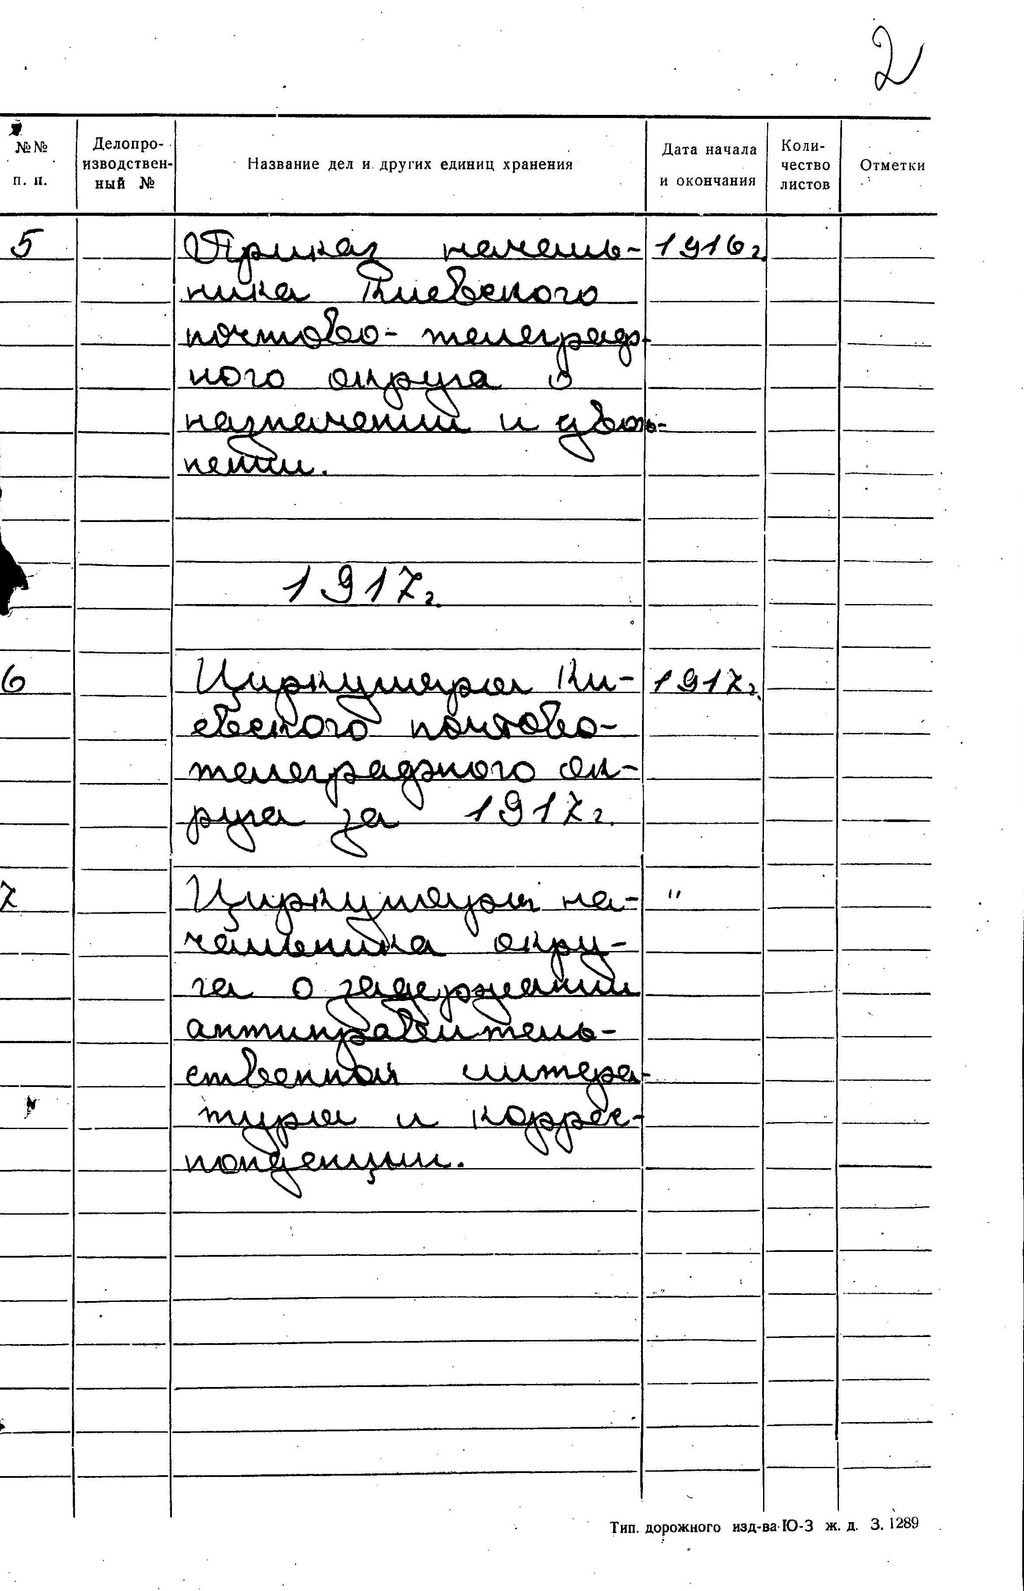 2
№№ п. п.
Делопро-
изводствен-
ный №
Название дел и других единиц хранения
Дата начала
и окончания
Коли-
чество
листов
Отметки
5 Приказ началь- 1916 г.
ника Киевского
почтово-телеграф-
ного округа о
назначении и уволь-
нении.
1917 г.
6 Циркуляры Ки- 1917 г.
евского почтово-
телеграфного ок-
руга за 1917 г.
7 Циркуляры на- "
чальника окру-
га о задержании
антиправитель-
ственной литера-
туры и коррес-
понденции.
Тип. дорожного изд-ва Ю-З ж. д. З. 1289